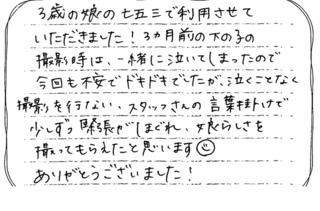 3歳の娘の七五三で利用させて
いただきました！3ヵ月前の下の子の
撮影時は、一緒に泣いてしまったので
今回も不安でドキドキでしたが、泣くことなく
撮影を行ない、スタッフさんの言葉掛けで
少しずつ緊張がほぐれ、娘らしさを
撮ってもらえたと思います☺
ありがとうございました！